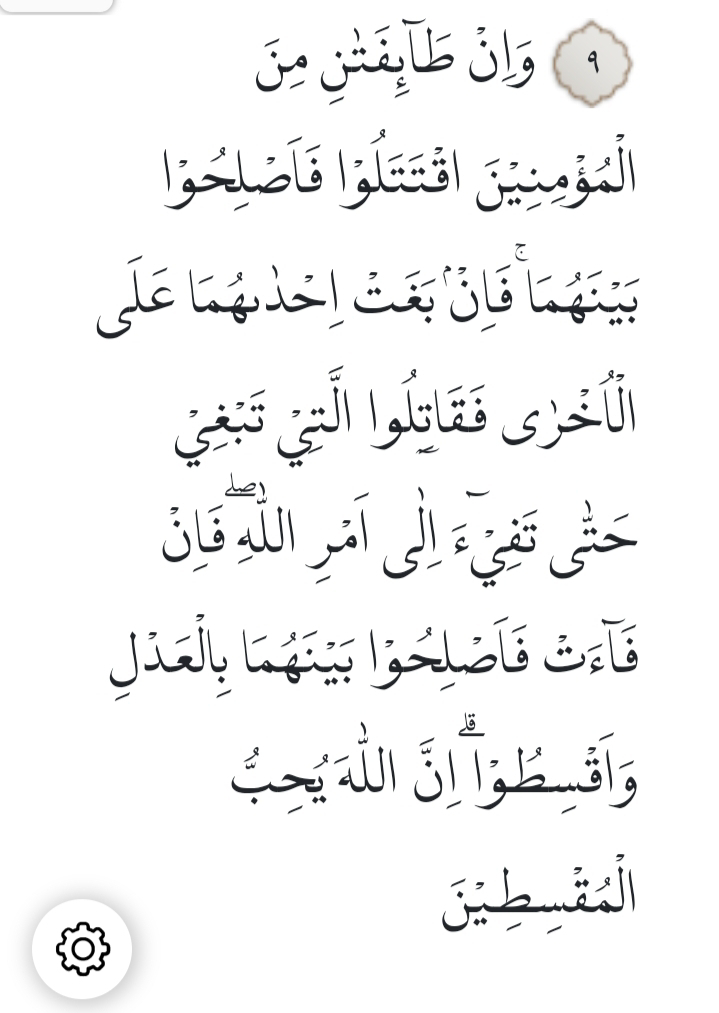 ٩ وَاِنْ طَاۤىِٕفَتٰنِ مِنَ
الْمُؤْمِنِيْنَ اقْتَتَلُوْا فَاَصْلِحُوْا
بَيْنَهُمَاۚ فَاِنْۢ بَغَتْ اِحْدٰىهُمَا عَلَى
الْاُخْرٰى فَقَاتِلُوا الَّتِيْ تَبْغِيْ
حَتّٰى تَفِيْۤءَ اِلٰٓى اَمْرِ اللّٰهِۖ فَاِنْ
فَاۤءَتْ فَاَصْلِحُوْا بَيْنَهُمَا بِالْعَدْلِ
وَاَقْسِطُوْاۗ اِنَّ اللّٰهَ يُحِبُّ
الْمُقْسِطِيْنَ